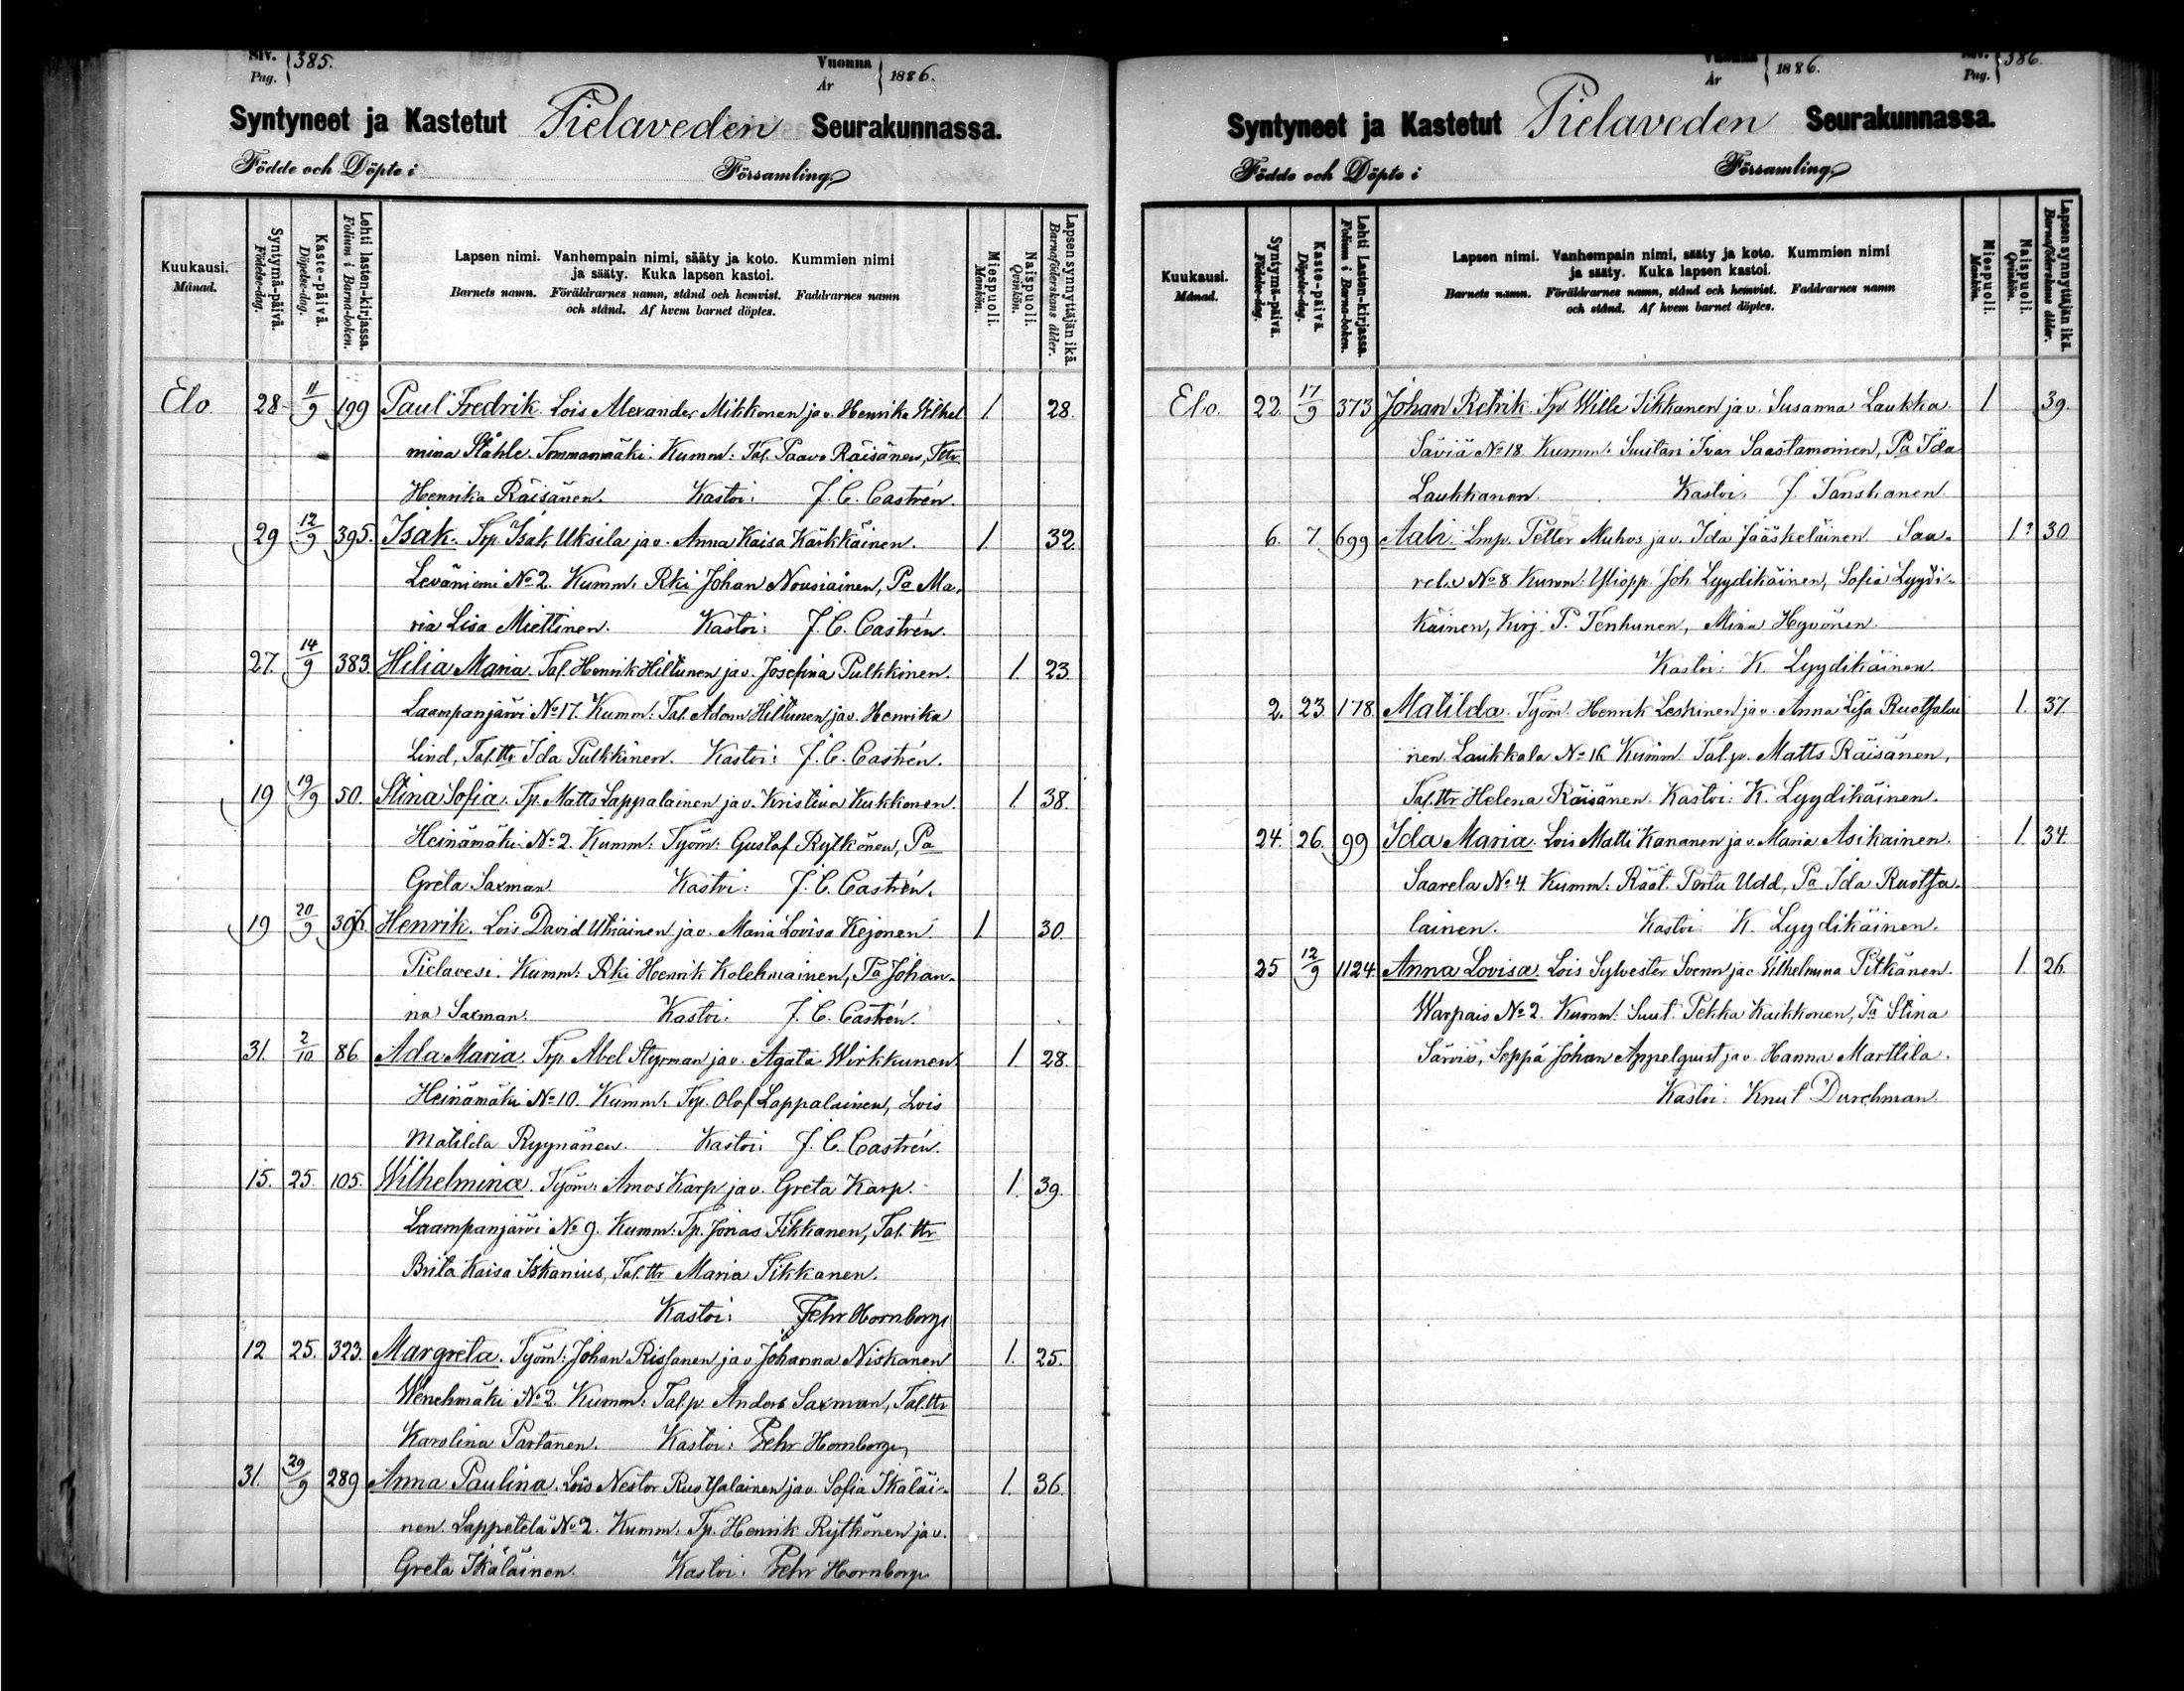 Siv. Pag. 385.
Vuonna År 1886.
Syntyneet ja Kastetut Pielaveden Seurakunnassa.
Födde och Döpte i Församling.
Kuukausi. Månad.
Syntymä-päivä. Födelse-dag.
Kaste-päivä. Döpelse-dag.
Lehti lasten-kirjassa. Folium i Barna-boken.
Lapsen nimi. Vanhempain nimi, sääty ja koto. Kummien nimi
ja sääty. Kuka lapsen kastoi.
Barnets namn. Föräldrarnes namn, stånd och hemvist. Faddrarnes namn
och stånd. Af hvem barnet döptes.
Miespuoli. Mankön.
Naispuoli. Qvinkön.
Lapsen synnyttäjän ikä. Barnaföderskans ålder.
Elo. 28 11/9 199 Paul Fredrik. Lois Alexander Mikkonen ja v. Henrika Vilhel 1. 28.
mina Ståhle. Tommanmäki. Kumm: Tal. Paavo Räisänen, Ttr
Henrika Räisänen. Kastoi: J. C. Castrén.
29 12/9 395. Isak. Trp. Isak Uksila ja v. Anna Kaisa Kärkkäinen. 1. 32.
Leväniemi No 2. Kumm: Rki Johan Nousiainen, Pa Ma-
ria Lisa Miettinen. Kastoi: J. C. Castrén.
27. 14/9 383. Hilia Maria. Tal. Henrik Hiltunen ja v. Josefina Pulkkinen. 1. 23.
Laampanjärvi No 17. Kumm: Tal. Adam Hiltunen ja v. Henrika
Lind, Tal. ttr Ida Pulkkinen. Kastoi: J. C. Castrén.
19 19/9 50. Stina Sofia. Tp. Matts Lappalainen ja v. Kristina Kukkonen. 1. 38.
Heinämäki No 2. Kumm: Työm: Gustaf Rytkönen, Pa
Greta Saxman. Kastoi: J. C. Castrén.
19 20/9 Henrik. Lois David Utriainen ja v. Maria Lovisa Kejonen. 1. 30.
Pielavesi. Kumm: Rki Henrik Kolehmainen, Pa Johan-
na Saxman. Kastoi: J. C. Castrén.
31. 2/10 86. Ada Maria. Trp. Abel Styrman ja v. Agata Wirkkunen. 1. 28.
Heinämäki No 10. Kumm: Trp. Olof Lappalainen, Lois
Matilda Ryynänen. Kastoi: J. C. Castrén.
15. 25. 105. Wilhelmina. Työm: Amos Karp ja v. Greta Karp. 1. 39.
Laampanjärvi No 9. Kumm: Tp. Jonas Tikkanen, Tal. ttr
Brita Kaisa Iskanius, Tal. ttr Maria Tikkanen.
Kastoi: Fehr Hornborg
12 25. 323. Margreta. Työm: Johan Rissanen ja v. Johanna Niskanen 1. 25.
Wenehmäki No 2. Kumm: Tal. p Anders Saxman, Tal. ttr
Karolina Partanen. Kastoi: Fehr Hornborg
31. 29/9 289 Anna Paulina. Lois Nestor Ruotsalainen ja v. Sofia Ikäläi- 1. 36.
nen. Lappetelä No 2. Kumm: Tp. Henrik Rytkönen ja v.
Greta Ikäläinen. Kastoi: Fehr Hornborg
Vuonna År 1886.
Siv. Pag. 386.
Syntyneet ja Kastetut Pielaveden Seurakunnassa.
Födde och Döpte i Församling.
Kuukausi. Månad.
Syntymä-päivä. Födelse-dag.
Kaste-päivä. Döpelse-dag.
Lehti Lasten-kirjassa. Folium i Barna-boken.
Lapsen nimi. Vanhempain nimi, sääty ja koto. Kummien nimi
ja sääty. Kuka lapsen kastoi.
Barnets namn. Föräldrarnes namn, stånd och hemvist. Faddrarnes namn
och stånd. Af hvem barnet döptes.
Miespuoli. Mankön.
Naispuoli. Qvinkön.
Lapsen synnyttäjän ikä. Barnaföderskans ålder.
Elo. 22. 17/9 373 Johan Retrik. Tp. Wille Tikkanen ja v. Susanna Laukka 1 39.
Säviä No 18. Kumm: Suutari Ivar Saastamoinen, Pa Ida
Laukkanen. Kastoi: J. Tanskanen
6. 7. 699 Aabi. Lmp. Petter Muhos ja v. Ida Jääskeläinen. Saa- 1? 30
rela No 8. Kumm: Yliopp. Joh. Lyydikäinen, Sofia Lyydi-
käinen, Kirj. P. Tenhunen, Mina Hyvönen.
Kastoi: K. Lyydikäinen.
2. 23. 178. Matilda. Työm. Henrik Leskinen ja v. Anna Lisa Ruotsalai 1. 37.
nen. Laukkala No 16. Kumm. Tal. p. Matts Räisänen,
Tal. ttr Helena Räisänen. Kastoi: K. Lyydikäinen.
24. 26. 99 Ida Maria. Lois Matti Kananen ja v. Maria Asikainen. 1. 34.
Saarela No 4. Kumm: Räät. Pertu Udd, Pa Ida Ruotsa-
lainen. Kastoi K. Lyydikäinen.
25 12/9 1124. Anna Lovisa. Lois Sylvester Svenn ja v. Vilhelmina Pitkänen. 1. 26.
Warpais No 2. Kumm: Suut. Pekka Kaikkonen, Pa Stina
Särviö, Seppä Johan Appelquist ja v. Hanna Marttila.
Kastoi: Knut Durchman.